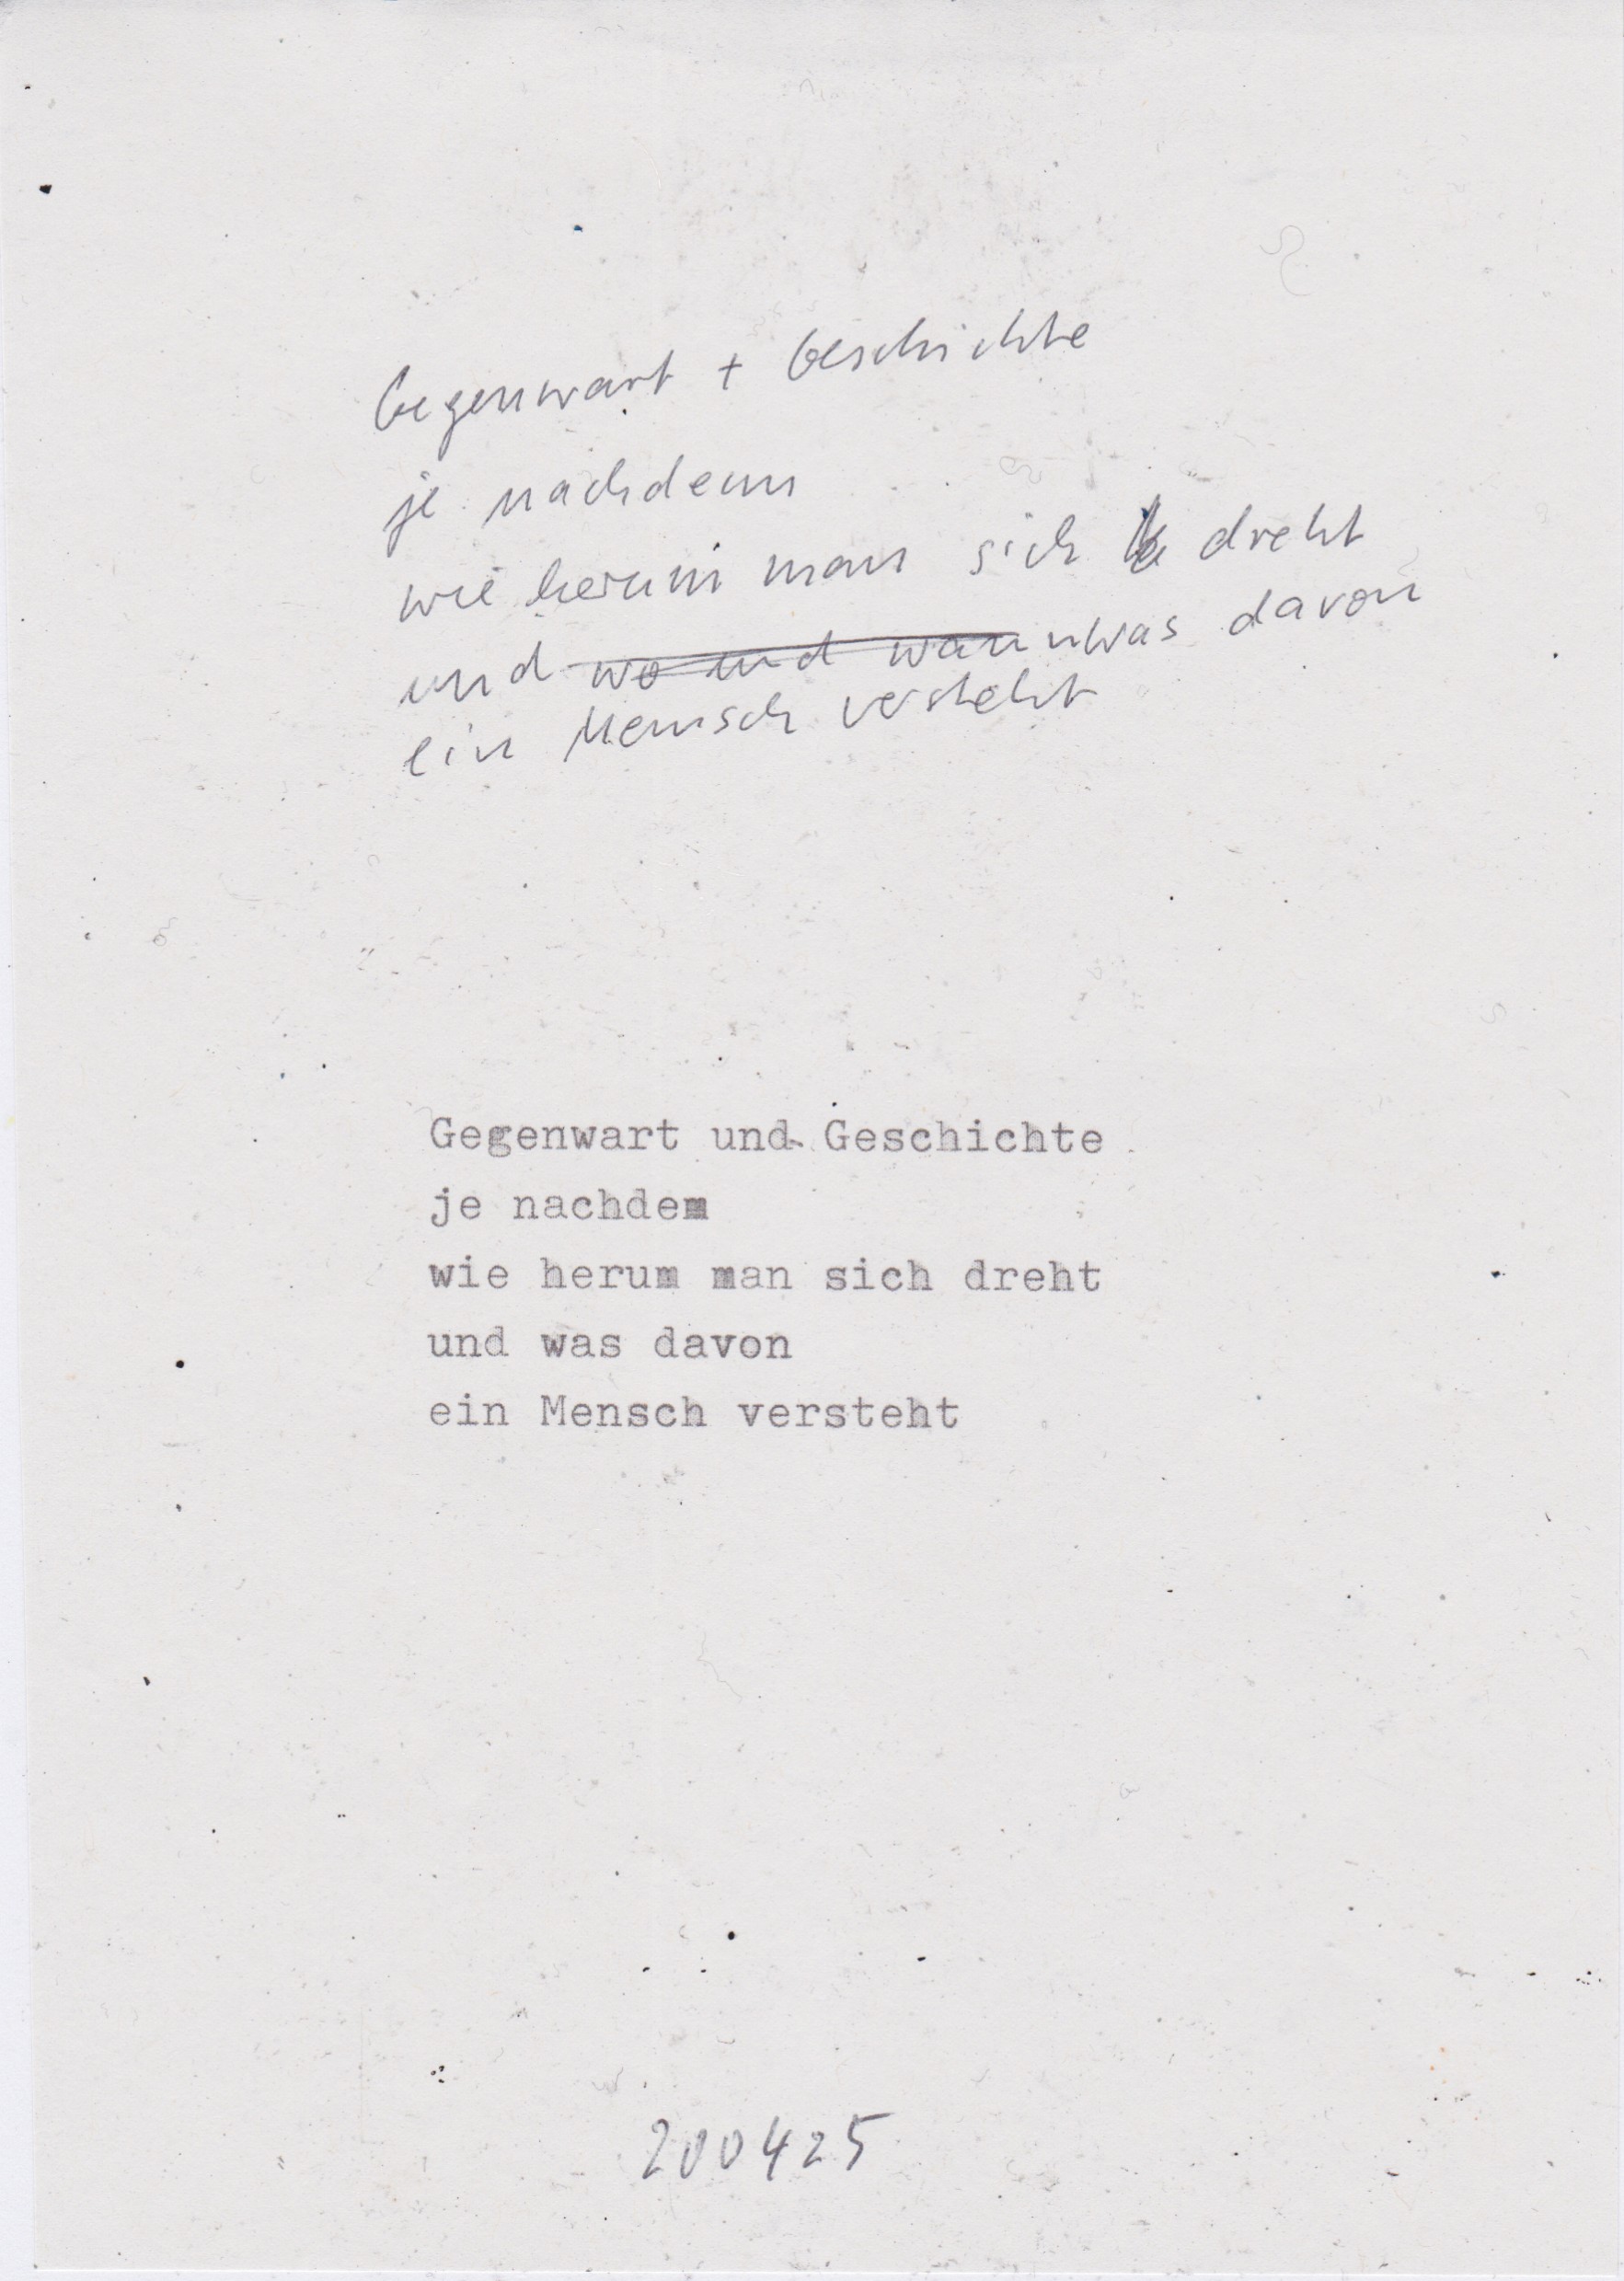 Gegenwart + Geschichte
je nachdem
wie herum man sich dreht
und wo und wann was davon
ein Mensch versteht
Gegenwart und Geschichte
je nachdem
wie herum man sich dreht
und was davon
ein Mensch versteht
200425